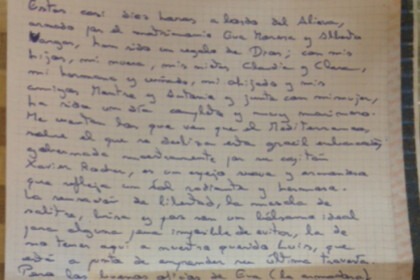 Estas casi diez horas a bordo del
armado por el matrimonio Eva Moreno y Alberto
Vargas, han sido un regalo de Dios; con mis
hijos, mi nuera, mis nietos Claudia y
mi hermana y cuñado, mi ahijado y mis
amigos y Antonio y junto con mi mujer,
ha sido un día completo y muy marinero.
Me cuentan los que ven que el Mediterraneo,
sobre el que se desliza esta gracil embarcación
gobernada por un capitán
Xavier es un espejo suave y
que refleja un sol radiante y hermoso.
La sensación de libertad, la mezcla de
salitre, brisa y paz son un bálsamo ideal
para alguna pena imposible de evitar, la de
no tener aquí a nuestro querido Luis, que
está a punto de emprender su última travesía.
Para los buenos oficios de Eva (la armadora)